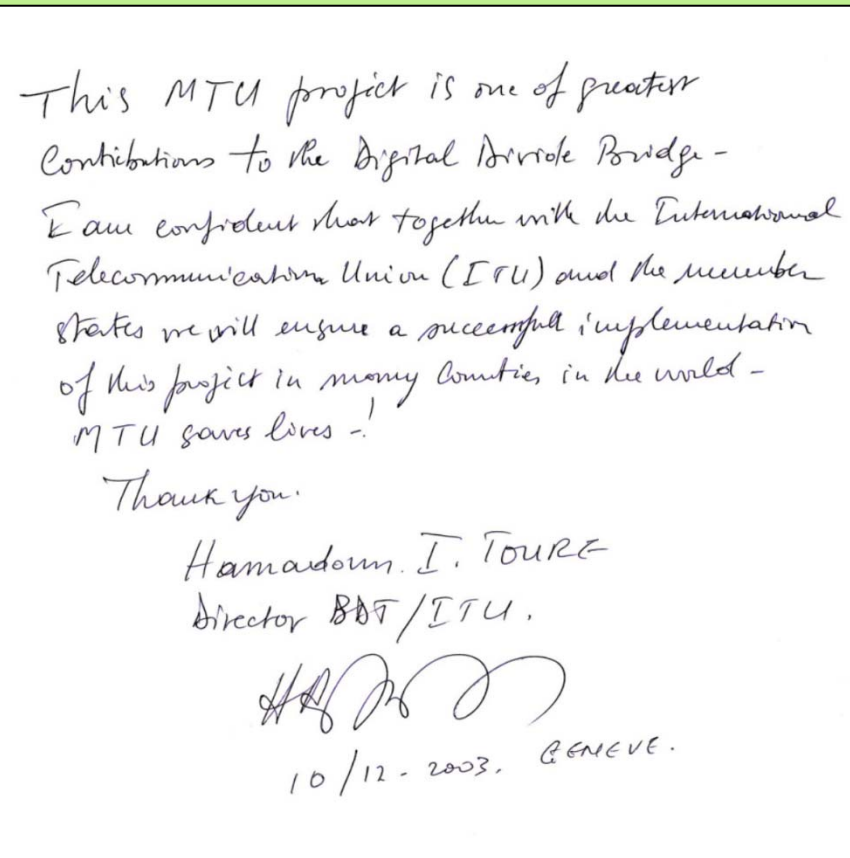 This MTU project is one of greatest
Contributions to the Digital Divide Bridge -
I am confident that together with the International
Telecommunication Union (ITU) and the member
states we will ensure a successfull implementation
of this project in many Counties in the world -
MTU saves lives - !
Thank you.
Hamadoun I. TOURE
Director BDT/ITU.
10/12 - 2003. GENEVE.